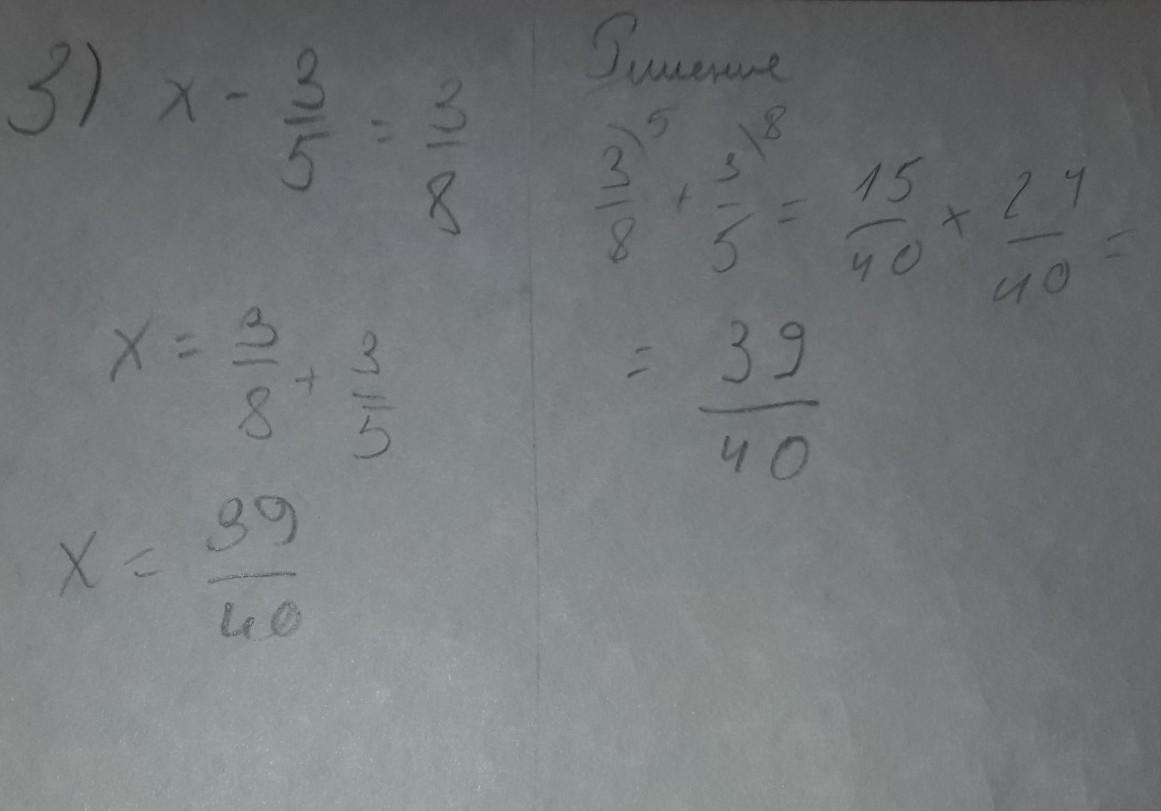 3) x - 3/5 = 3/8
x = 3/8 + 3/5
x = 39/40
Решение
3/8)5 + 3/5)8 = 15/40 x 24/40 =
= 39/40